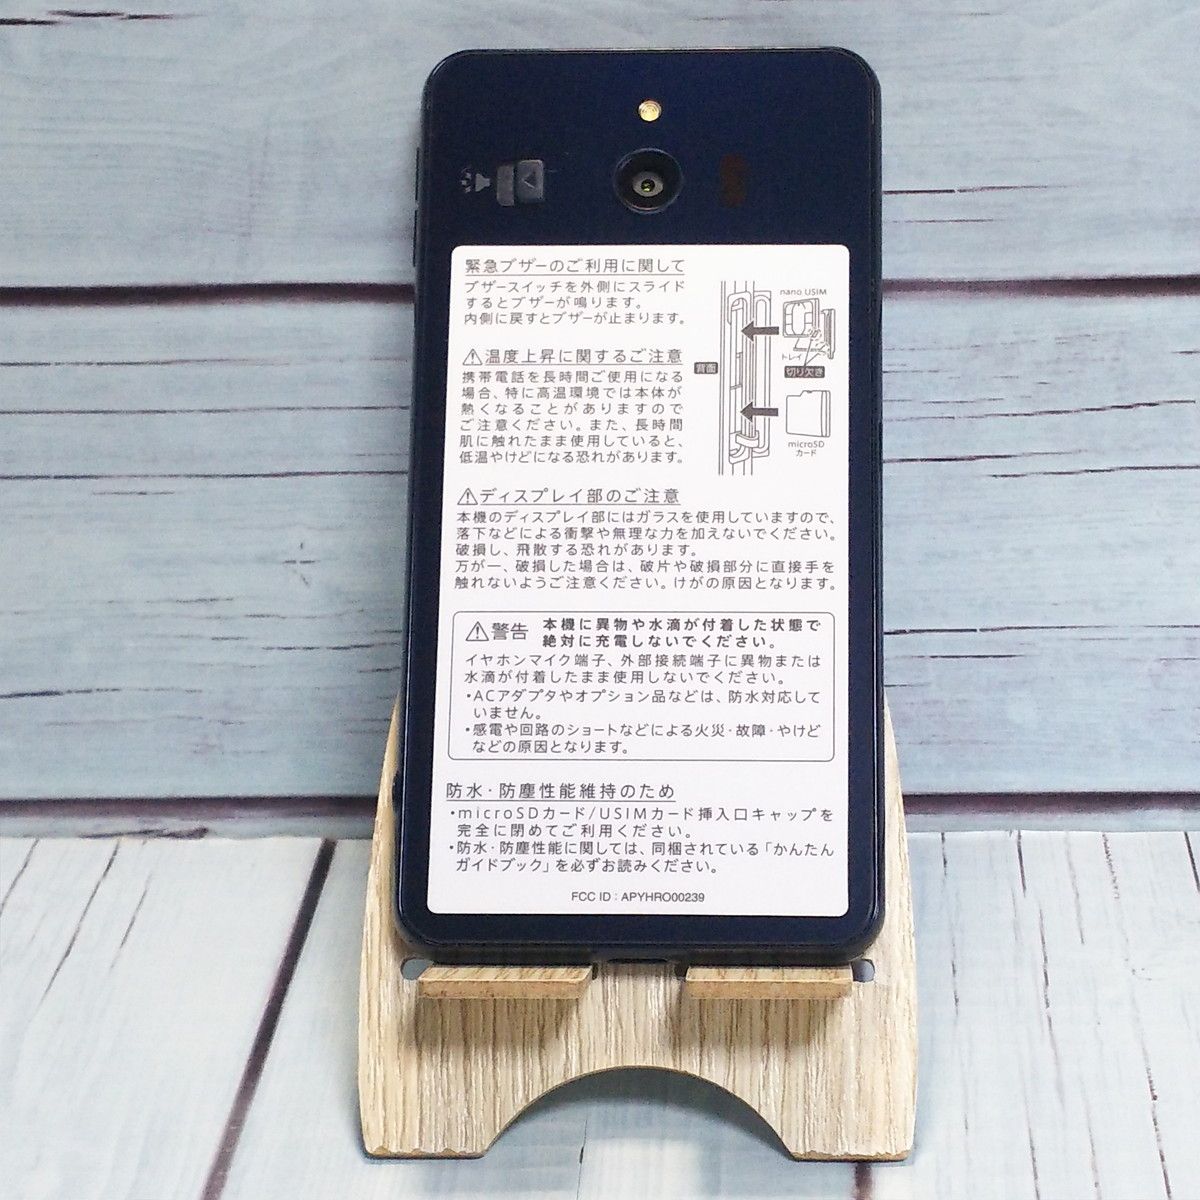 緊急ブザーのご利用に関して
ブザースイッチを外側にスライド
するとブザーが鳴ります。
内側に戻すとブザーが止まります。
nano USIM
トレイ
切り欠き
背面
microSD
カード
⚠温度上昇に関するご注意
携帯電話を長時間ご使用になる
場合、特に高温環境では本体が
熱くなることがありますので
ご注意ください。また、長時間
肌に触れたまま使用していると、
低温やけどになる恐れがあります。
⚠ディスプレイ部のご注意
本機のディスプレイ部にはガラスを使用していますので、
落下などによる衝撃や無理な力を加えないでください。
破損し、飛散する恐れがあります。
万が一、破損した場合は、破片や破損部分に直接手を
触れないようご注意ください。けがの原因となります。
⚠警告 本機に異物や水滴が付着した状態で
絶対に充電しないでください。
イヤホンマイク端子、外部接続端子に異物または
水滴が付着したまま使用しないでください。
・ACアダプタやオプション品などは、防水対応して
いません。
・感電や回路のショートなどによる火災・故障・やけど
などの原因となります。
防水・防塵性能維持のため
・microSDカード/USIMカード挿入口キャップを
完全に閉めてご利用ください。
・防水・防塵性能に関しては、同梱されている「かんたん
ガイドブック」を必ずお読みください。
FCC ID : APYHRO00239